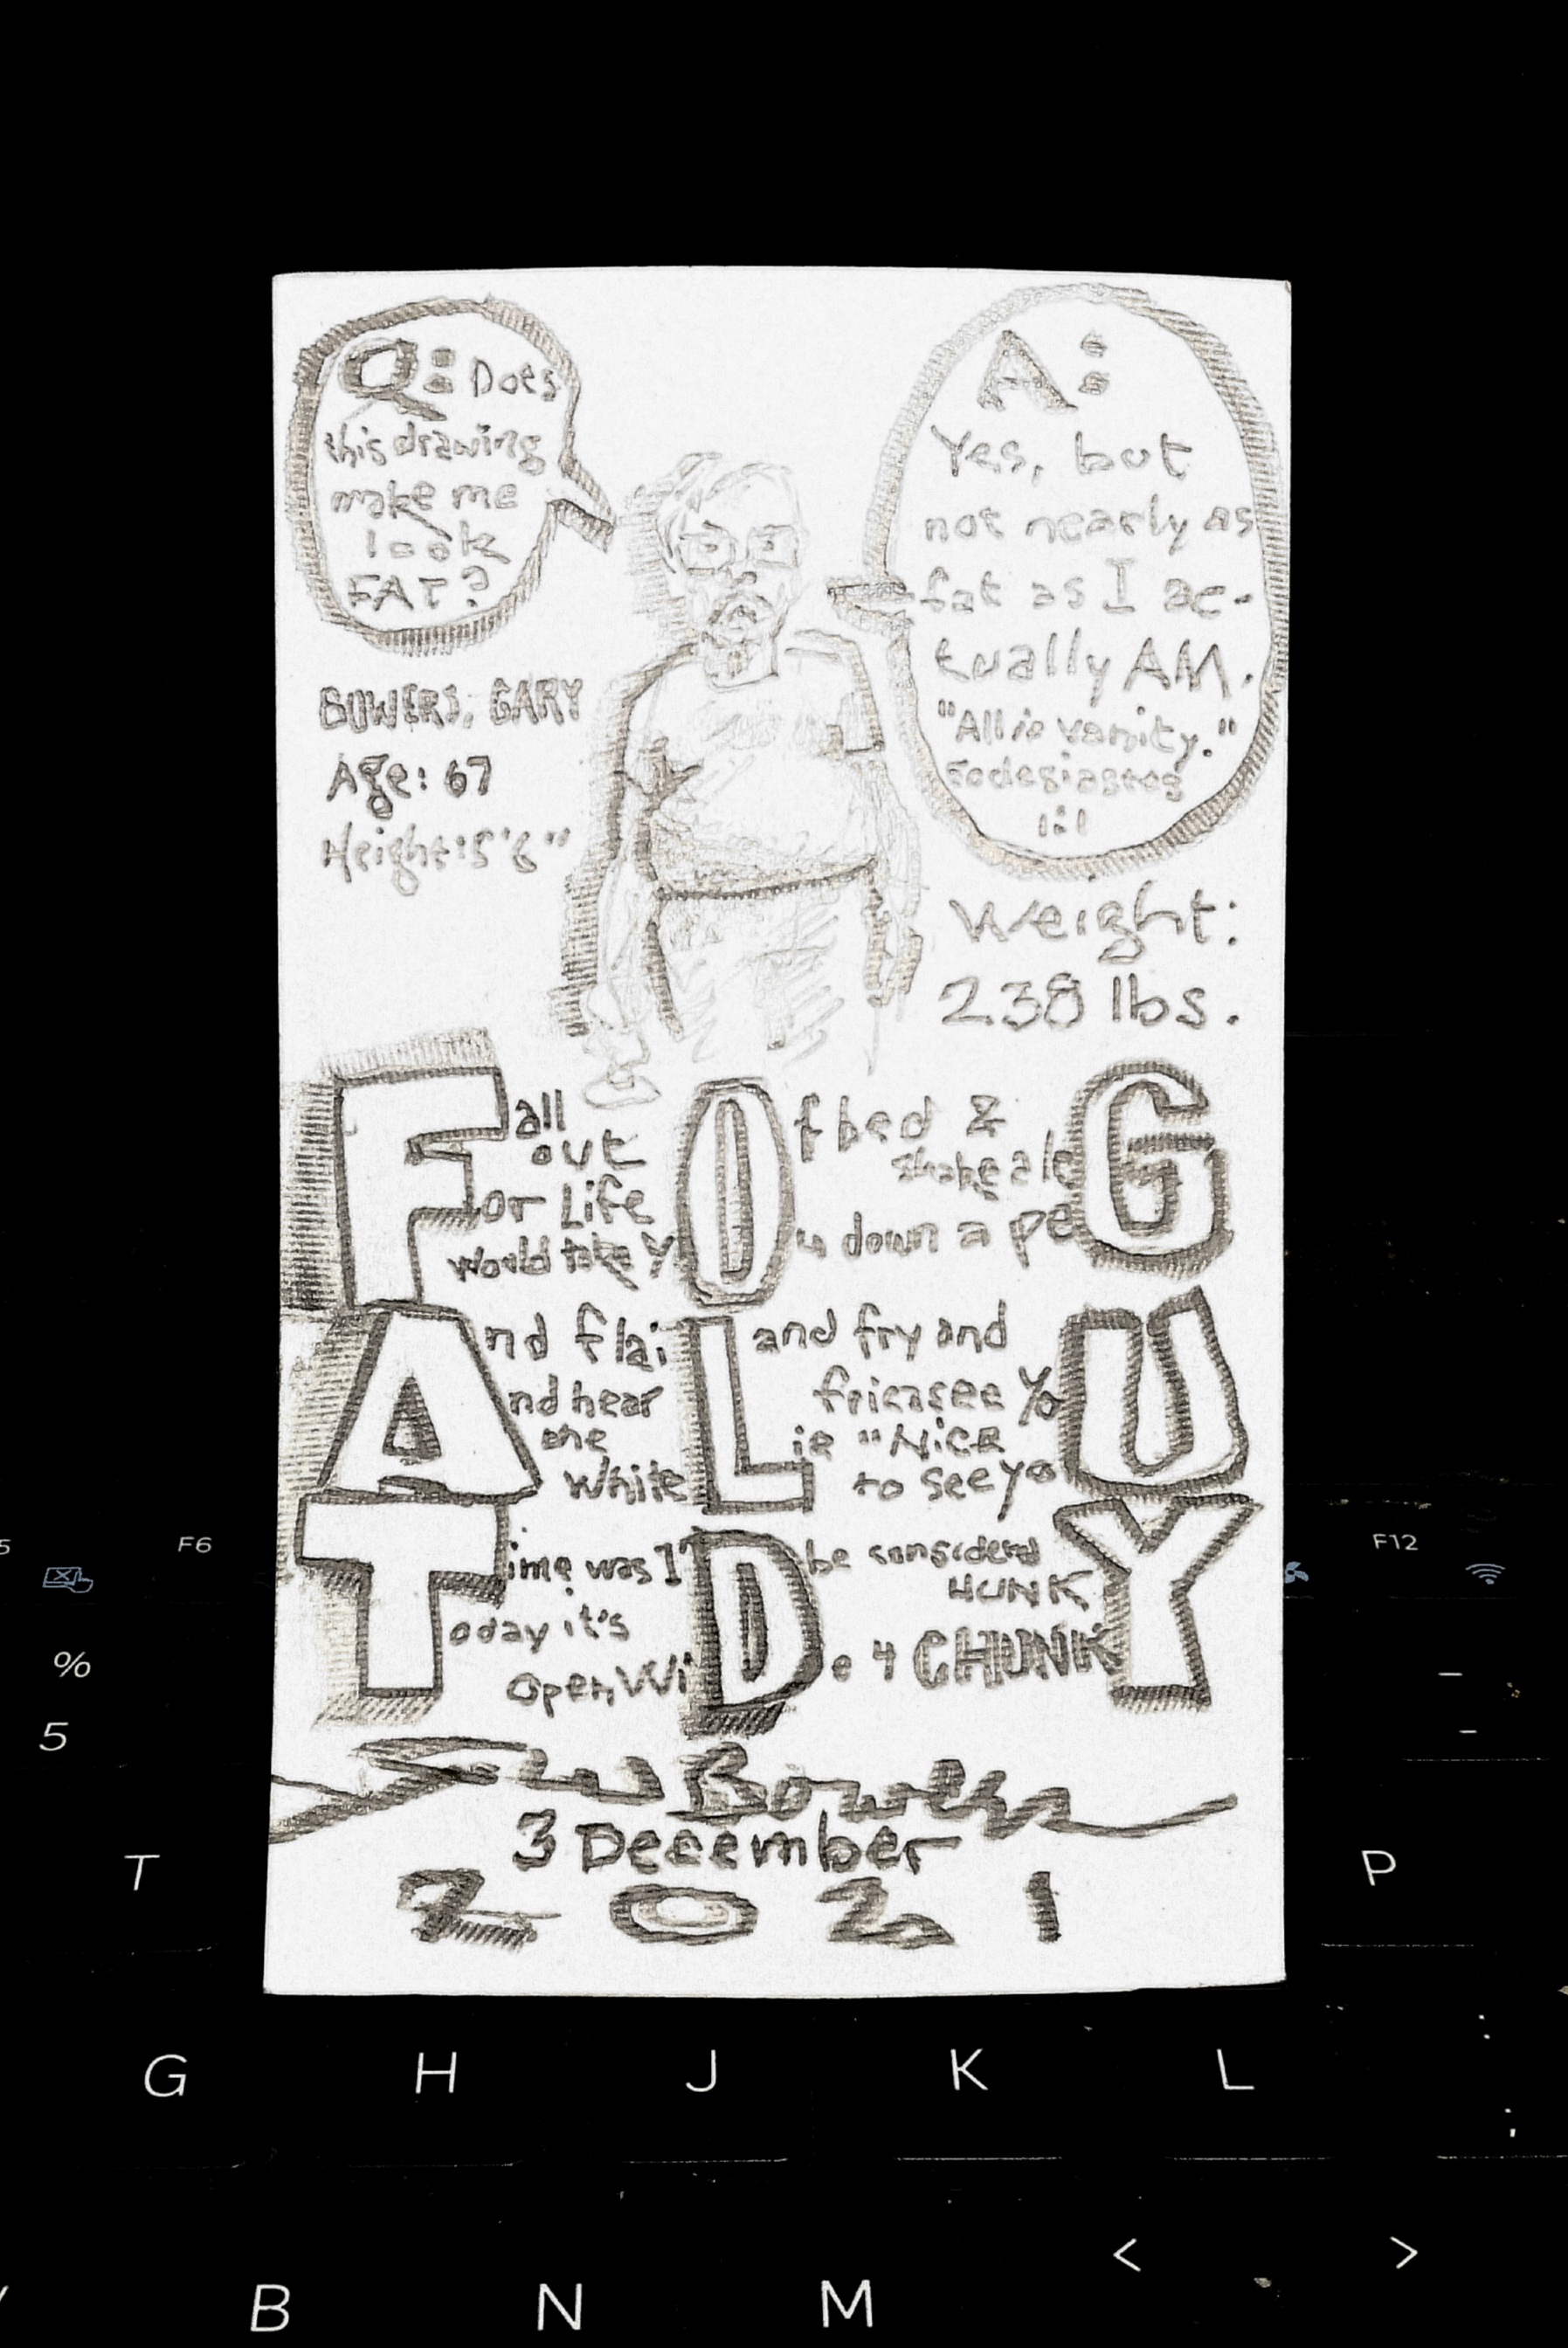 Q: Does
this drawing
make me
look
FAT?
A:
Yes, but
not nearly as
fat as I ac-
tually AM.
"All is vanity."
Ecclesiastes
1:1
BOWERS, GARY
Age: 67
Height: 5'6"
Weight:
238 lbs.
Fall Of bed &
out shake a leG
For Life
would take yOu down a peG
And flaiL and fry and
And hear fricasee yoU
the Lie "Nice
white to see yoU
Time was I'D be considerd
HUNKY
Today it's
Open WiDe 4 CHUNKY
Bowers
3 December
2021
F6
F12
%
5
5
T
P
G
H
J
K
L
;
:
B
N
M
<
>